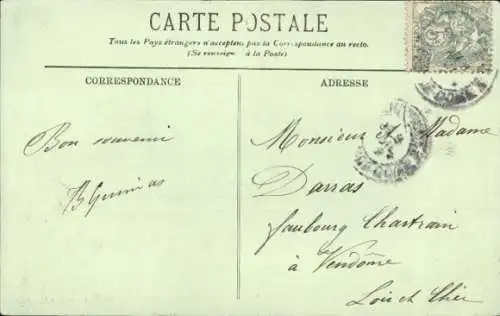 CARTE POSTALE
Tous les Pays étrangers n'acceptent pas la Correspondance au recto.
(Se renseigner à la Poste)
CORRESPONDANCE
ADRESSE
Bon souvenir
Monsieur et Madame
Darras
faubourg Chartrain
à Vendôme
Loir et Cher